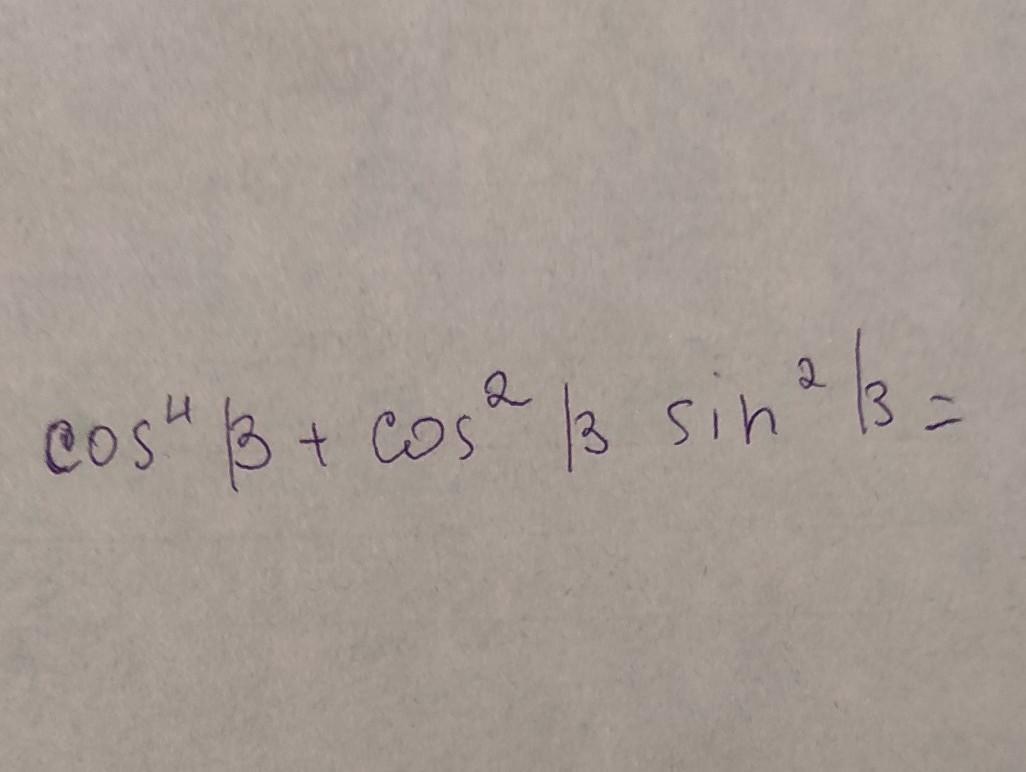 cos⁴ β + cos² β sin² β =